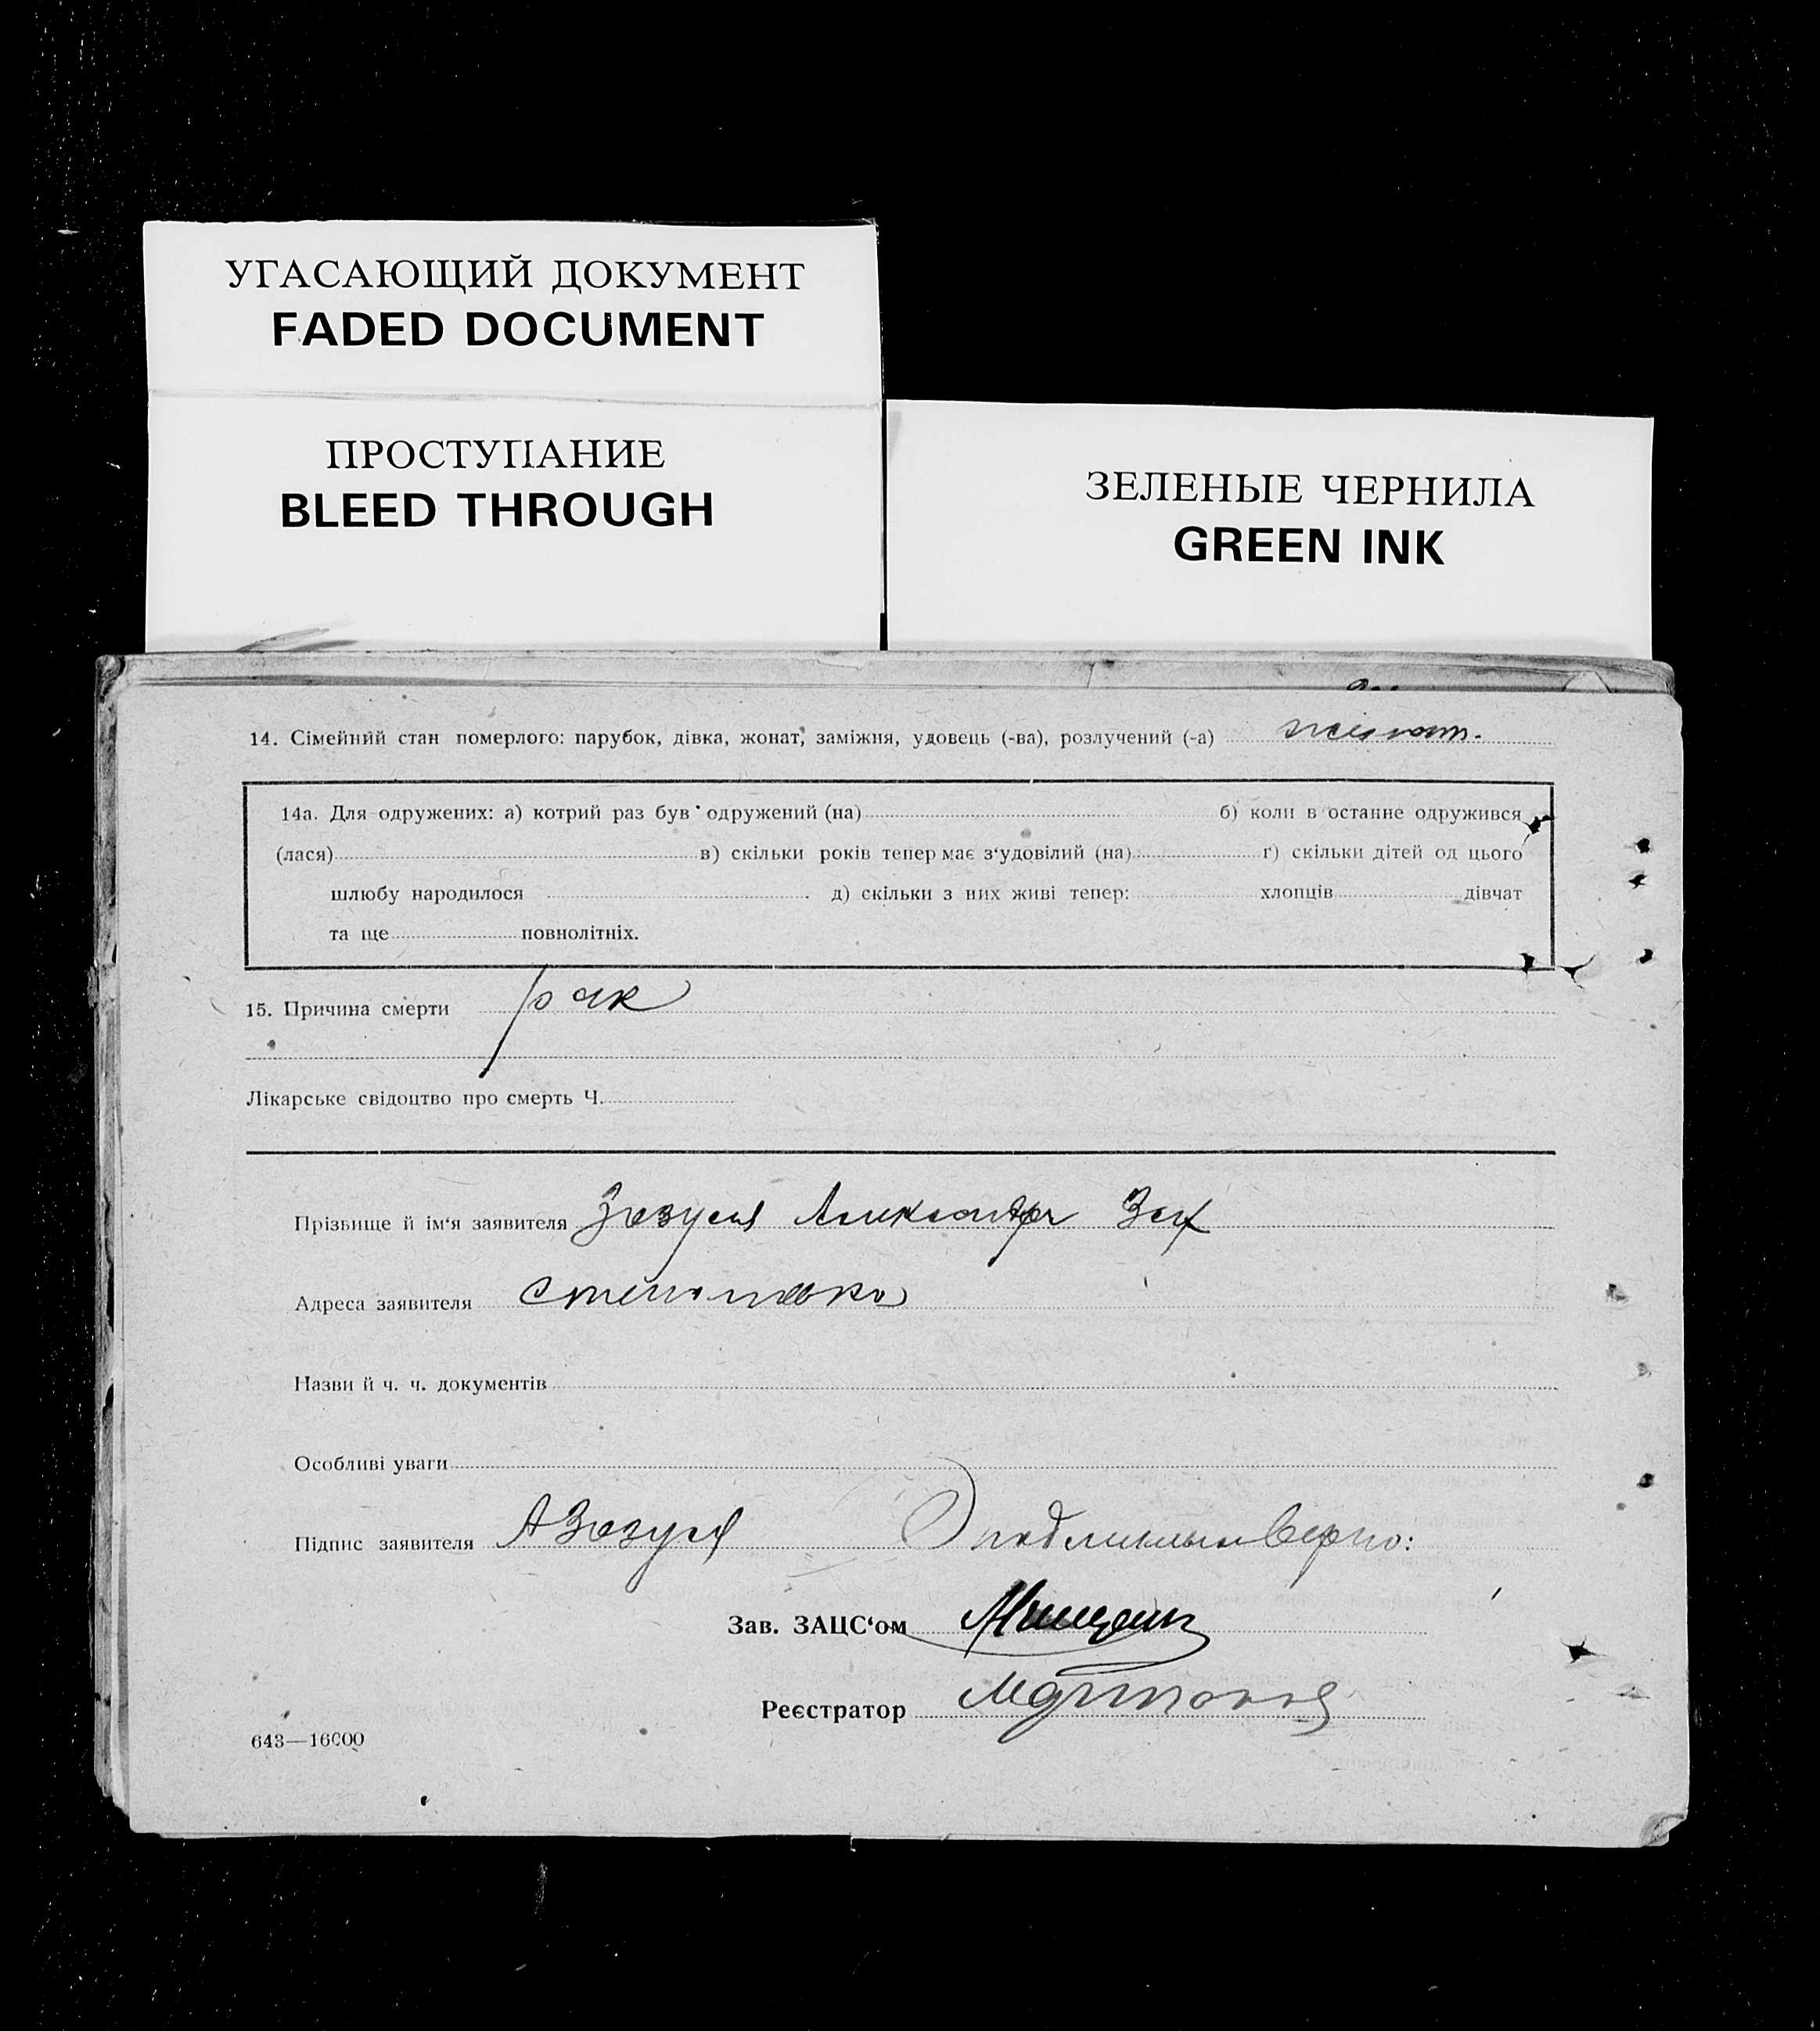 УГАСАЮЩИЙ ДОКУМЕНТ
FADED DOCUMENT
ПРОСТУПАНИЕ
BLEED THROUGH
ЗЕЛЕНЫЕ ЧЕРНИЛА
GREEN INK
14. Сімейний стан померлого: парубок, дівка, жонат, заміжня, удовець (-ва), розлучений (-а)
14а. Для одружених: а) котрий раз був одружений (на) б) коли в останнє одружився
(лася) в) скільки років тепер має з‘удовілий (на) г) скільки дітей од цього
шлюбу народилося д) скільки з них живі тепер: хлопців дівчат
та ще повнолітніх.
15. Причина смерти рак
Лікарське свідоцтво про смерть Ч.
Прізвище й ім‘я заявителя Зозуля Александр Зах
Адреса заявителя Степановка
Назви й ч. ч. документів
Особливі уваги
Підпис заявителя АЗозуля подлинным верно:
Зав. ЗАЦС‘ом
Реєстратор
643—16000